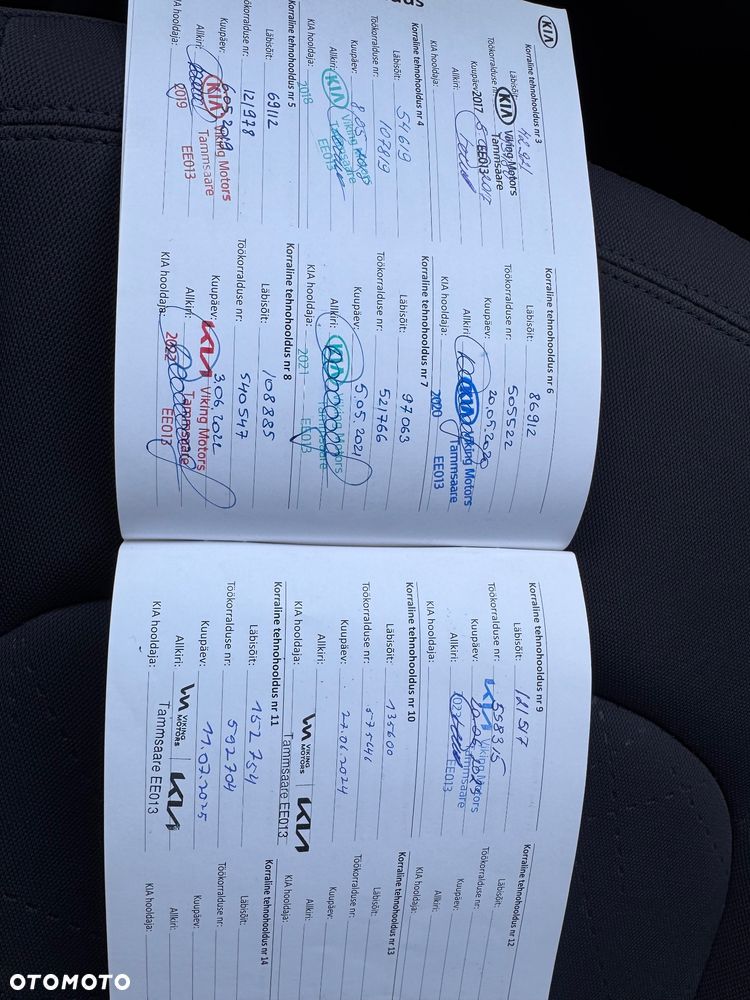 KIA
Korraline tehnohooldus nr 3
Läbisõit:
Töökorralduse nr:
Kuupäev:
2017
Allkiri:
KIA hooldaja:
KIA Viking Motors
Tammsaare
EE013
Korraline tehnohooldus nr 4
Läbisõit: 54619
Töökorralduse nr: 107819
Kuupäev: 8.05.
Allkiri:
KIA hooldaja:
2018
KIA Viking Motors
Tammsaare
Korraline tehnohooldus nr 5
Läbisõit: 69112
Töökorralduse nr: 121978
Kuupäev: 6.05.2019
Allkiri:
KIA hooldaja:
2019
KIA Viking Motors
Tammsaare
EE013
Korraline tehnohooldus nr 6
Läbisõit: 86912
Töökorralduse nr: 505522
Kuupäev: 20.05.2020
Allkiri:
KIA hooldaja:
2020
KIA Viking Motors
Tammsaare
EE013
Korraline tehnohooldus nr 7
Läbisõit: 97063
Töökorralduse nr: 521766
Kuupäev: 5.05.2021
Allkiri:
KIA hooldaja:
2021
KIA Viking Motors
Tammsaare
EE013
Korraline tehnohooldus nr 8
Läbisõit: 108885
Töökorralduse nr: 540547
Kuupäev: 3.06.2022
Allkiri:
KIA hooldaja:
2022
KIA Viking Motors
Tammsaare
EE013
Korraline tehnohooldus nr 9
Läbisõit: 121517
Töökorralduse nr: 558315
Kuupäev:
Allkiri:
KIA hooldaja:
Viking Motors
Tammsaare
EE013
Korraline tehnohooldus nr 10
Läbisõit: 135600
Töökorralduse nr: 575646
Kuupäev: 27.06.2024
Allkiri:
KIA hooldaja:
VIKING MOTORS KIA
Tammsaare EE013
Korraline tehnohooldus nr 11
Läbisõit: 152754
Töökorralduse nr: 592704
Kuupäev: 11.07.2025
Allkiri:
KIA hooldaja:
VIKING MOTORS KIA
Tammsaare EE013
Korraline tehnohooldus nr 12
Läbisõit:
Töökorralduse nr:
Kuupäev:
Allkiri:
KIA hooldaja:
Korraline tehnohooldus nr 13
Läbisõit:
Töökorralduse nr:
Kuupäev:
Allkiri:
KIA hooldaja:
Korraline tehnohooldus nr 14
Läbisõit:
Töökorralduse nr:
Kuupäev:
Allkiri:
KIA hooldaja:
OTOMOTO